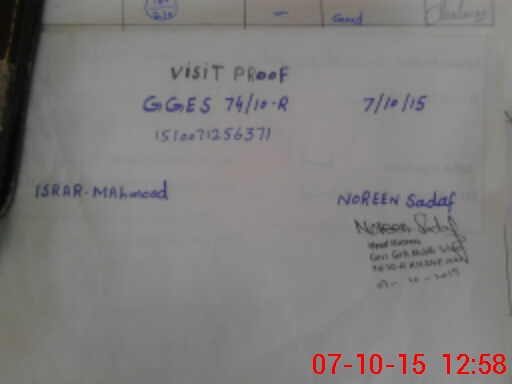 Good
VISIT PROOF
GGES 74/10-R 7/10/15
1510071256371
ISRAR-MAhmood NOREEN Sadaf
Noreen Sadaf
Head Mistress
Govt Girls
07-10-2015
07-10-15 12:58